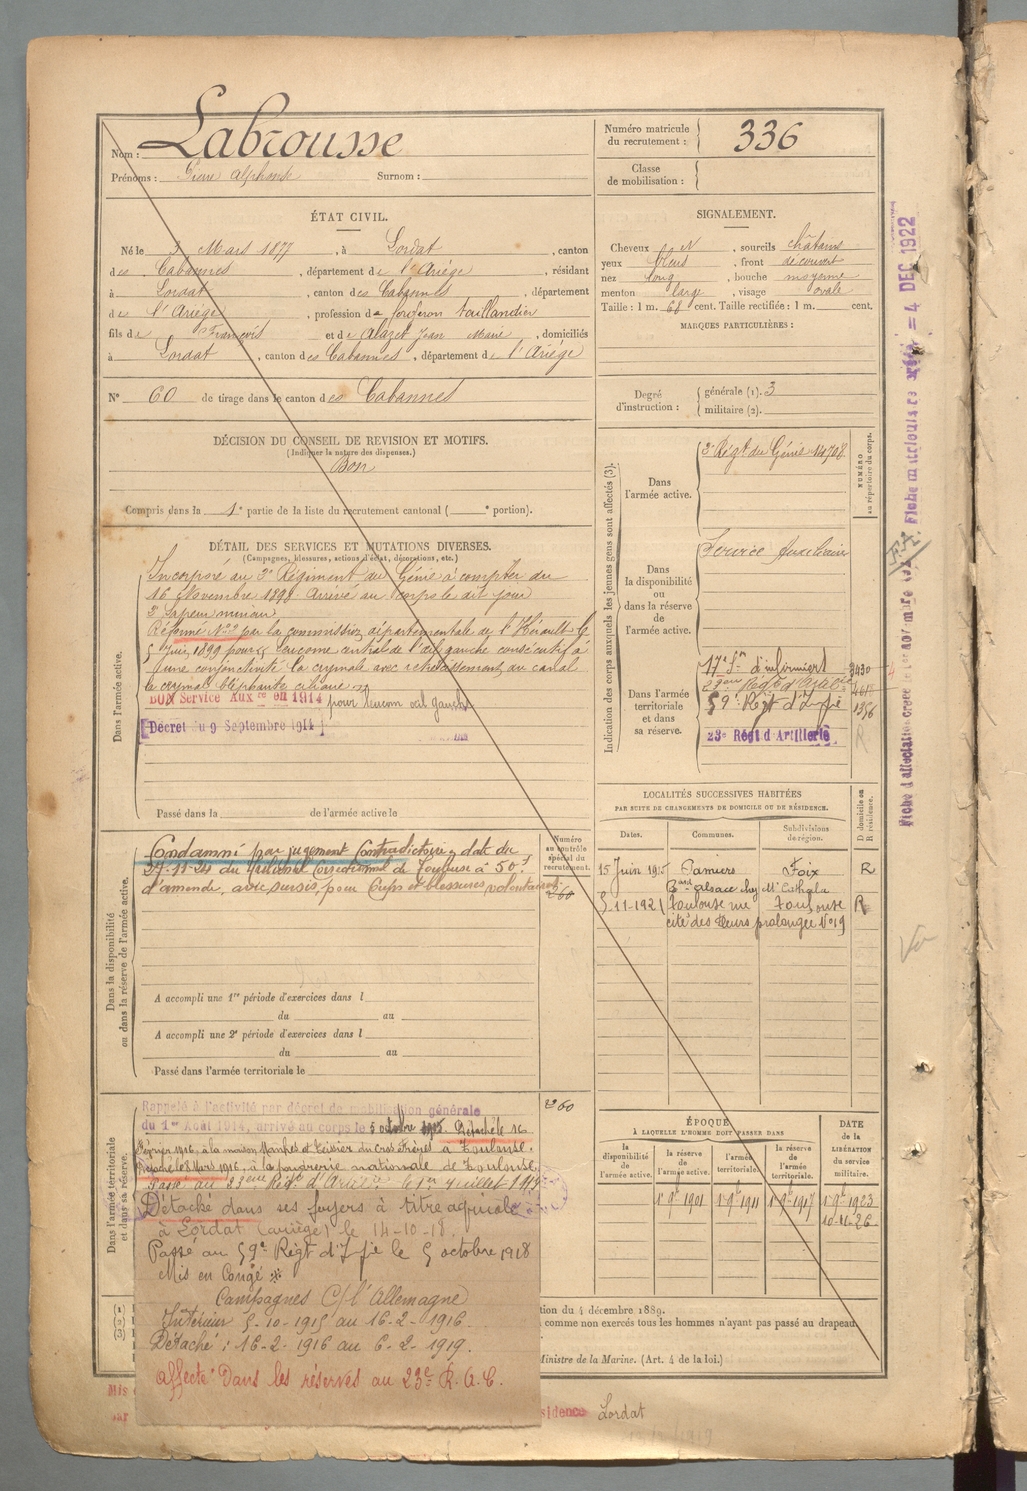 Nom : Labrousse
Prénoms : Pierre Alphonse Surnom :
Numéro matricule du recrutement : 336
Classe de mobilisation :
ÉTAT CIVIL.
Né le Mars 1877, à Lordat, canton
des Cabannes, département de l'Ariège, résidant
à Lordat, canton des Cabannes, département
de l'Ariège, profession de forgeron taillandier
fils de François et de Alazet Jean Marie, domiciliés
à Lordat, canton des Cabannes, département de l'Ariège
N° 60 de tirage dans le canton des Cabannes
SIGNALEMENT.
Cheveux N, sourcils châtains
yeux bleus, front découvert
nez long, bouche moyenne
menton large, visage ovale
Taille : 1 m. 68 cent. Taille rectifiée : 1 m. cent.
MARQUES PARTICULIÈRES :
Degré d'instruction : générale (1). 3
militaire (2).
DÉCISION DU CONSEIL DE REVISION ET MOTIFS.
(Indiquer la nature des dispenses.)
Bon
Compris dans la 1e partie de la liste du recrutement cantonal ( e portion).
DÉTAIL DES SERVICES ET MUTATIONS DIVERSES.
(Campagnes, blessures, actions d'éclat, décorations, etc.)
Dans l'armée active.
Incorporé au 3e Régiment du Génie à compter du
16 Novembre 1898. Arrivé au corps le dit jour
2e Sapeur mineur
Réformé N°2 par la commission départementale de l'Hérault
1899 pour leucome central de l'œil gauche consécutif à
une conjonctivite lacrymale avec rétrécissement du canal
lacrymal blépharite ciliaire
Bon Service Auxre en 1914 pour leucom œil gauche
Décret du 9 Septembre 1914
Passé dans la de l'armée active le
Indication des corps auxquels les jeunes gens sont affectés (3).
NUMÉRO au répertoire du corps.
Dans l'armée active.
3e Régt du Génie 14708
Dans la disponibilité ou dans la réserve de l'armée active.
Service Auxiliaire
Dans l'armée territoriale et dans sa réserve.
17e Son d'infirmiers 3430
23eme Régt d'Artillerie
59e Régt d'Ifie 1356
23e Régt d'Artillerie R
Dans la disponibilité ou dans la réserve de l'armée active.
Condamné par jugement Contradictoire, date du
27-11-24 du Tribunal Correctionnel de Toulouse à 50f
d'amende, avec sursis, pour Coups et blessures volontaires
Numéro au contrôle spécial du recrutement.
260
A accompli une 1re période d'exercices dans l
du au
A accompli une 2e période d'exercices dans l
du au
Passé dans l'armée territoriale le
LOCALITÉS SUCCESSIVES HABITÉES
PAR SUITE DE CHANGEMENTS DE DOMICILE OU DE RÉSIDENCE.
Dates. Communes. Subdivisions de région. D domicile ou R résidence.
15 Juin 1915 Pamiers Foix R
Bard alsace chez Mr Cathala
5-11-1921 Toulouse rue Toulouse R
cité des fleurs prolongée N°19
Dans l'armée territoriale et dans sa réserve.
Rappelé à l'activité par décret de mobilisation générale
du 1er Août 1914, arrivé au corps le 5 octobre 1915. Détaché le 16
Février 1916, à la maison Manhes et Teisier du Cros Frères à Toulouse.
Détaché le 8 Mars 1916, à la poudrerie nationale de Toulouse.
Passé au 23eme Régt d'Artie le 1er Juillet 1917
Détaché dans ses foyers à titre agricole
à Lordat (ariège) le 14-10-18.
Passé au 59e Régt d'Ifie le 5 octobre 1918
Mis en Congé
Campagnes C/ l'Allemagne
Intérieur 5-10-1915 au 16-2-1916.
Détaché : 16-2-1916 au 6-2-1919.
affecté Dans les réserves au 23e R.A.C.
260
ÉPOQUE
À LAQUELLE L'HOMME DOIT PASSER DANS
la disponibilité de l'armée active. la réserve de l'armée active. l'armée territoriale. la réserve de l'armée territoriale.
DATE de la LIBÉRATION du service militaire.
1901 1911 1917 1923
10-11-26
(1)
(2)
(3)
tion du 4 décembre 1889.
comme non exercés tous les hommes n'ayant pas passé au drapeau
Ministre de la Marine. (Art. 4 de la loi.)
Mis
par
sidence Lordat
= 4 DEC. 1922
Fiche matriculaire créée le
Fiche d'affectation créée le 1er
F.A.
Vu